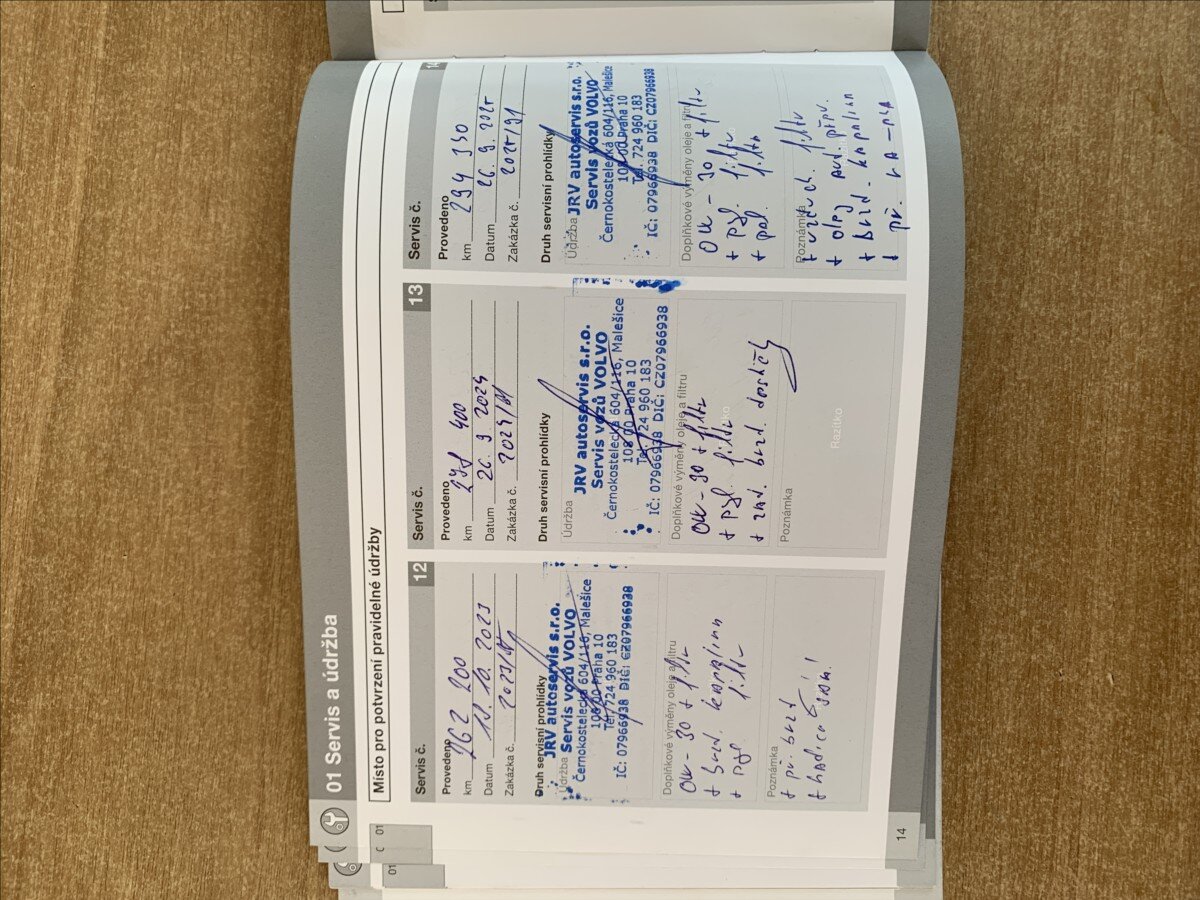 01 Servis a údržba
Místo pro potvrzení pravidelné údržby
Servis č. 12
Provedeno
km 262 200
Datum 18. 10. 2023
Zakázka č. 2023/
Druh servisní prohlídky
Údržba
JRV autoservis s.r.o.
Servis vozů VOLVO
Černokostelecká 604/116, Malešice
108 00 Praha 10
Tel. 724 960 183
IČ: 07966938 DIČ: CZ07966938
Doplňkové výměny oleje a filtru
0W-30 + filtr
+ brzd. kapalinu
+ pyl. filtr
Poznámka
+ př. brzd
+ hadice
Servis č. 13
Provedeno
km 278 400
Datum 26. 9. 2024
Zakázka č. 2024/
Druh servisní prohlídky
Údržba
JRV autoservis s.r.o.
Servis vozů VOLVO
Černokostelecká 604/116, Malešice
108 00 Praha 10
Tel. 724 960 183
IČ: 07966938 DIČ: CZ07966938
Doplňkové výměny oleje a filtru
0W-30 + filtr
+ pyl. filtr
+ zad. brzd. destičky
Poznámka
Razítko
Servis č. 14
Provedeno
km 294 340
Datum 26. 9. 2025
Zakázka č. 2025/91
Druh servisní prohlídky
Údržba
JRV autoservis s.r.o.
Servis vozů VOLVO
Černokostelecká 604/116, Malešice
108 00 Praha 10
Tel. 724 960 183
IČ: 07966938 DIČ: CZ07966938
Doplňkové výměny oleje a filtru
0W-30 + filtr
+ pyl. filtr
+ pal. filtr
Poznámka
+ vzduch. filtr
+ olej aut. přev.
+ brzd. kapalina
+ př.
14